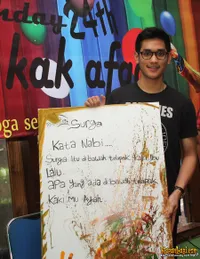 nday 24th
kak afa
oga se
Surga
Kata Nabi...
Surga itu di bawah telapak kaki Ibu
Lalu
apa yang ada di bawah telapak
kaki Mu Ayah